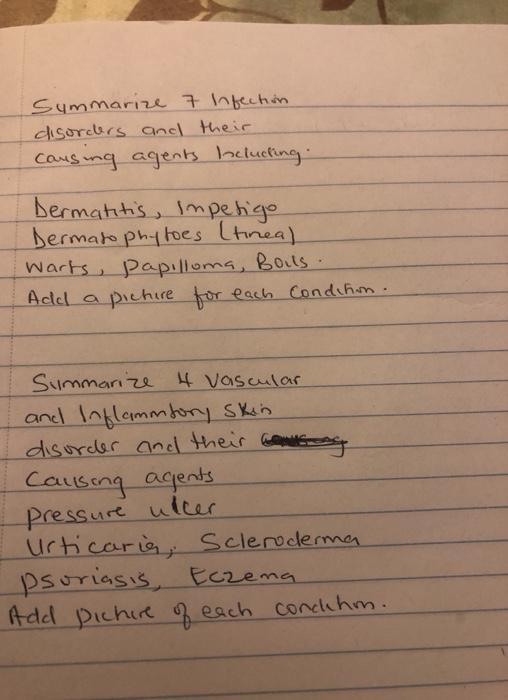 Summarize 7 Infection
disorders and their
causing agents Including.
Dermatitis, Impetigo
Dermatophytoes (tinea)
Warts, Papilloma, Boils.
Add a picture for each condition.
Summarize 4 Vascular
and Inflammtory skin
disorder and their
Causing agents
pressure ulcer
Urticaria, Scleroderma
psoriasis, Eczema
Add picture of each condition.